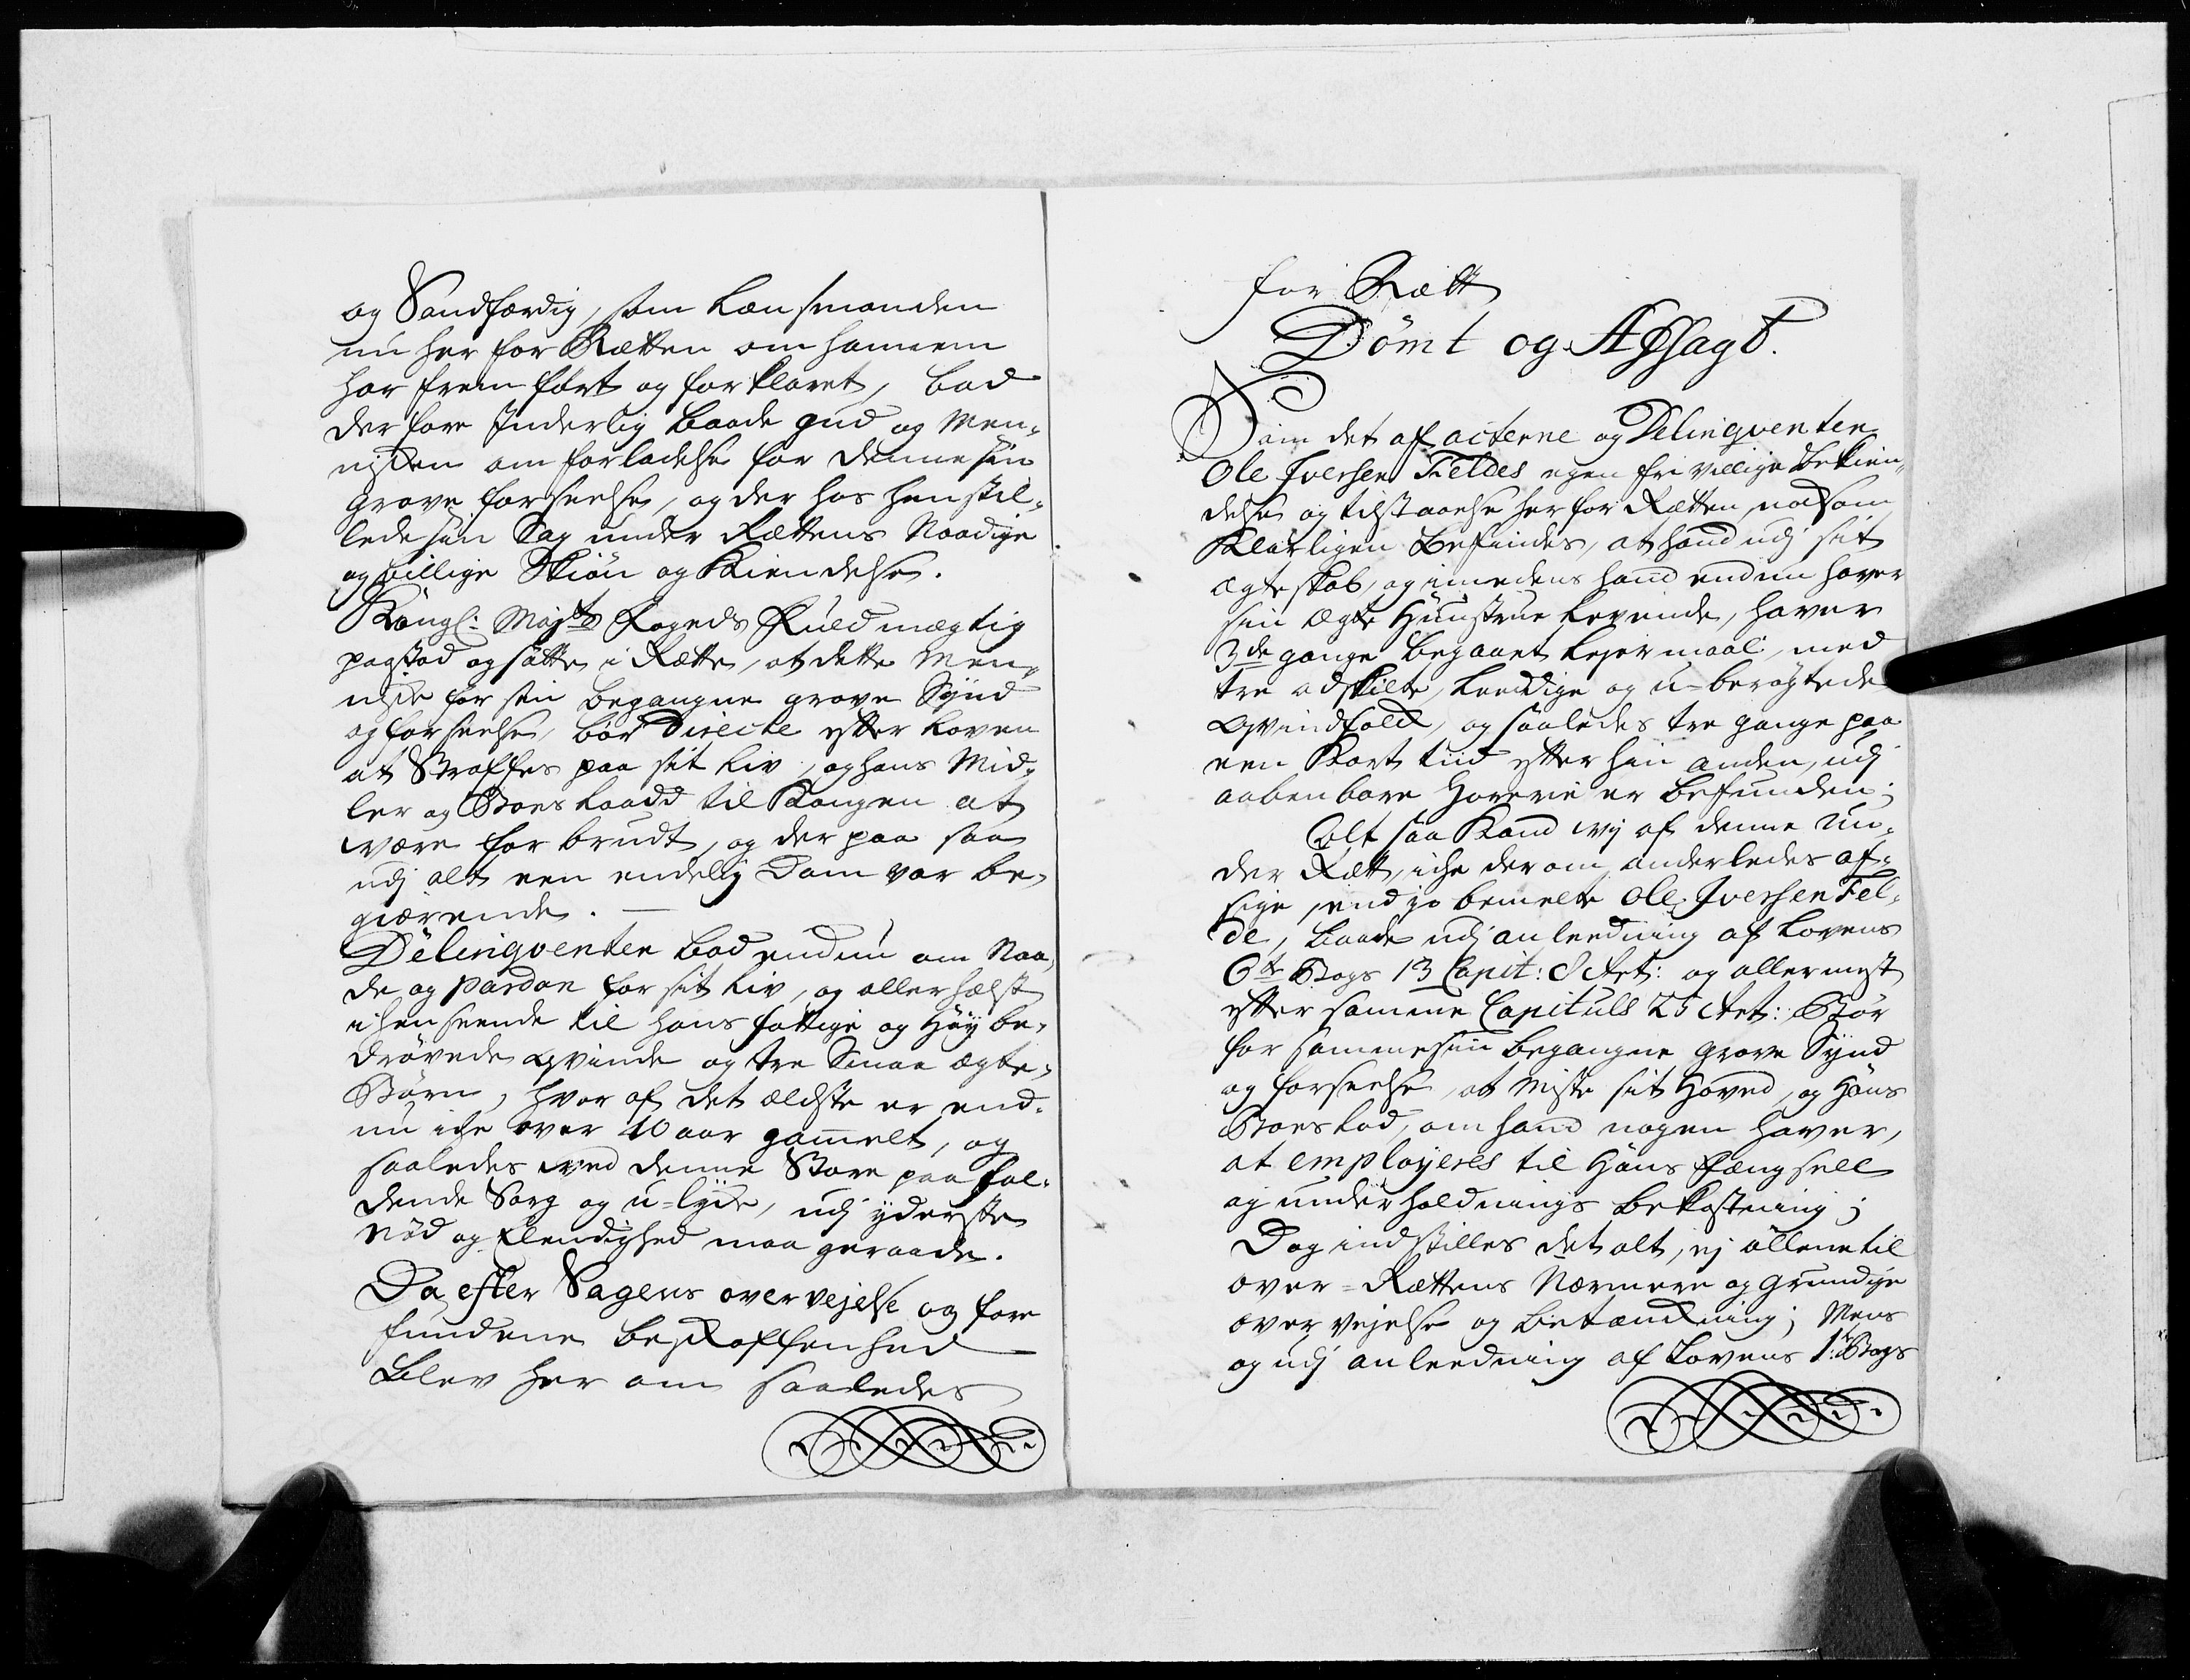 og Sandfærdig, som Lænsmanden
nu her for Rætten om hannem
har frem ført og forklaret, bad
derfore Inderlig baade gud og Men-
nisken om forladelse for denne sin
grove forseelse, og der hos henstil-
lede sin Sag under Rættens Naadige
og billige Skiøn og Kiendelse.
Kongl: Majts Fogeds Fuldmægtig
paastod og satte i Rette, at dette Men-
niske for sin begangne grove Synd
og forseelse, bør Directe efter Loven
at Straffes paa sit Liv, og hans Mid-
ler og Boes Laadd til Kongen at
være forbrudt, og der paa saa
udj alt een endelig Dom var be-
giærende.
Delinqventen bad endnu om Naa-
de og pardon for sit Liv, og allerhelst
i henseende til hans fattige og Høy be-
drøvede Qvinde og tre Smaa ægte-
Børn, hvor af det ældste er end-
nu iche over 10 aar gammelt, og
saaledes ved denne Store paafal-
dende Sorg og u-lyke, udj yderste
Nød og Elendighed maa geraade.
Da efter Sagens overvejelse og fore
fundene beskaffenhed
Blev her om saaledes
for Rætt
Dømt og Afsagt.
Som det af acterne og Delinqventen
Ole Iversen Feldes egen frivillige bekien-
delse og tilstaaelse her for Rætten, noksom
Klarligen befindes, at hand udj sit
ægteskab, og imedens hand endnu haver
sin ægte Hunstrue Levende, haver
3de gange begaaet Lejermaal, med
tre adskilte, Leedige og u-berøgtede
Qvindfolk, og saaledes tre gange paa
een Kort tiid efter hin anden, udj
aabenbare Horerie er befunden;
Alt saa Kand vij af denne Un-
der Rætt, iche derom anderledes af-
sige, end jo bemelte Ole Iversen Fel-
de, baade udj anleedning af Lovens
6te Bogs 13 Capit: 8 Art: og allermest
efter samme Capituls 25 Art: Bør
for samme sin begangne grove Synd
og forseelse, at Miste sit Hoved, og Hans
Boeslod, om hand nogen haver,
at employeres til Hans Fængsell
og underholdnings bekostning;
Dog indstilles det alt, ej allene til
over-Rættens Nærmere og grundige
overvejelse og betænkning; Mens
og udj anleedning af Lovens 1te Bogs